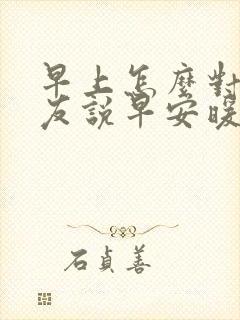 早上怎麼對
友說早安暖
石貞善